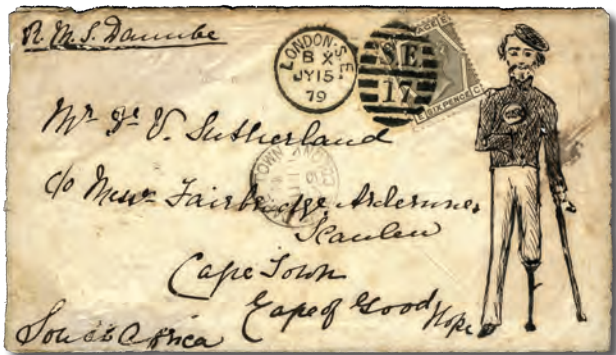 R.M.S. Danube
LONDON·S.E
B X
JY 15
79
S.E.
17
SIX PENCE
Mr Js V. Sutherland
c/o Messrs Fairbridge Arderne &
Scanlen
Cape Town
Cape of Good Hope
South Africa